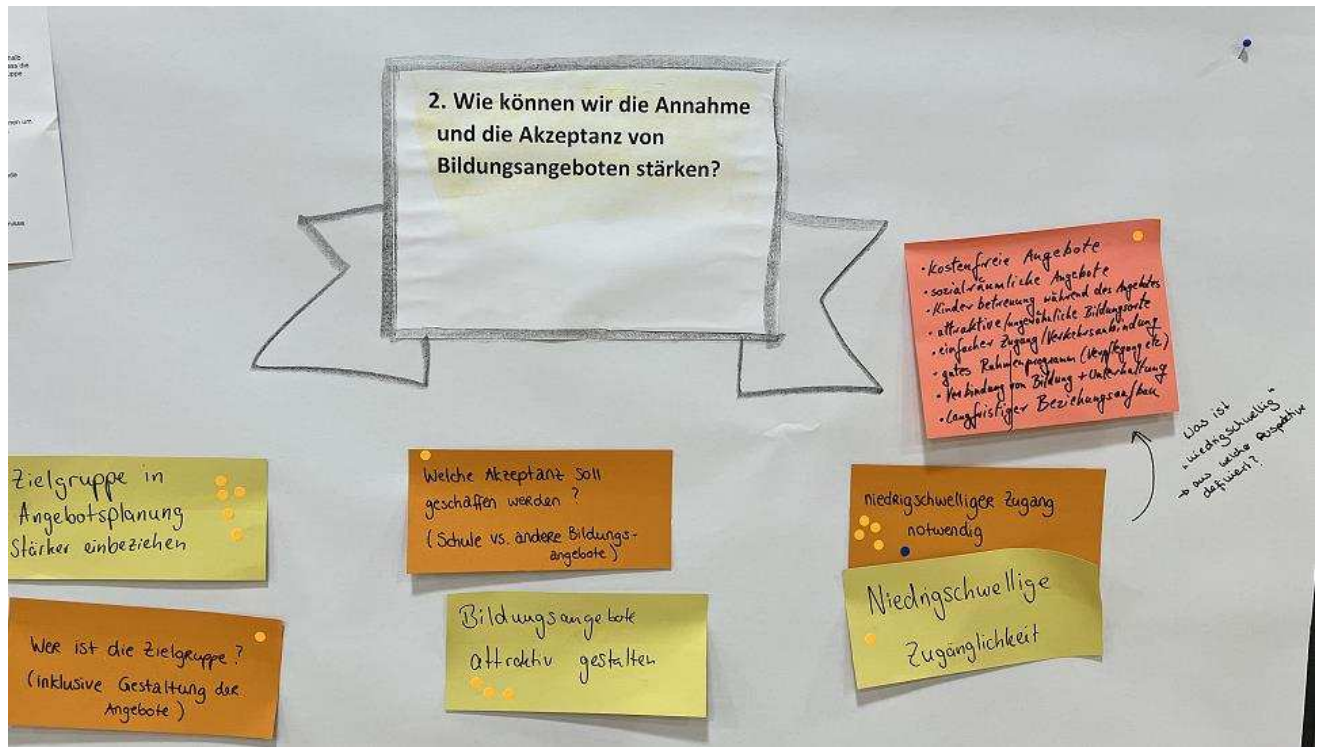 2. Wie können wir die Annahme
und die Akzeptanz von
Bildungsangeboten stärken?
• Kostenfreie Angebote
• sozialräumliche Angebote
• Kinderbetreuung während des Angebotes
• attraktive/ungewöhnliche Bildungsorte
• einfacher Zugang/Verkehrsanbindung
• gutes Rahmenprogramm (Verpflegung etc.)
• Verbindung von Bildung + Unterhaltung
• langfristiger Beziehungsaufbau
Was ist
"niedrigschwellig"
→ aus welcher Perspektive
definiert?
Zielgruppe in
Angebotsplanung
Stärker einbeziehen
Welche Akzeptanz soll
geschaffen werden?
(Schule vs. andere Bildungs-
angebote)
niedrigschwelliger Zugang
notwendig
Niedrigschwellige
Zugänglichkeit
Wer ist die Zielgruppe?
(inklusive Gestaltung der
Angebote)
Bildungsangebote
attraktiv gestalten